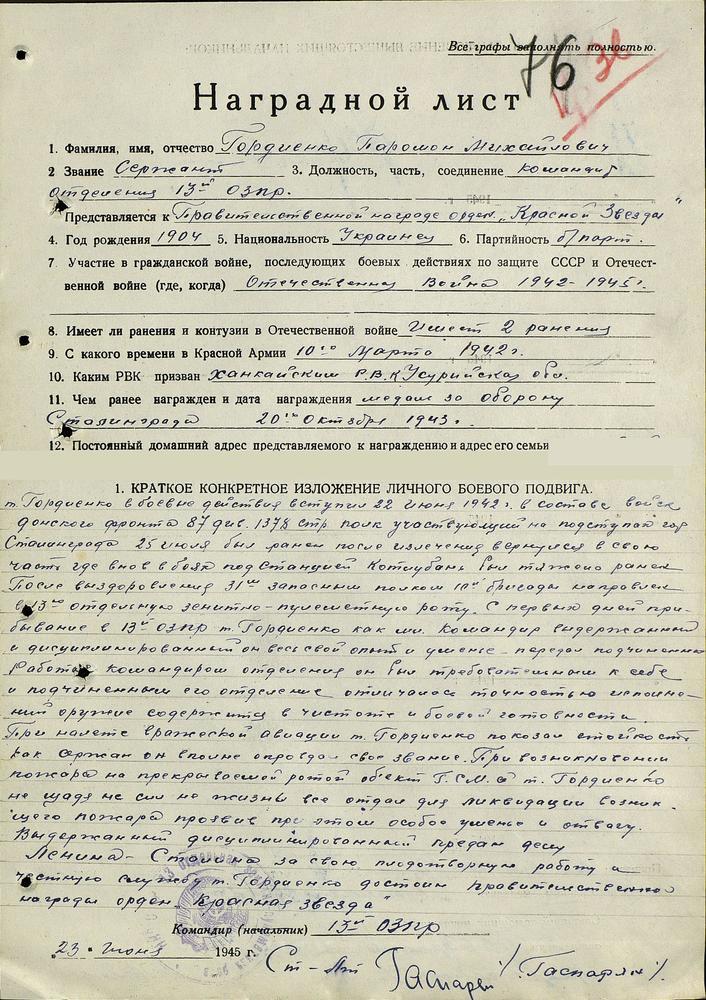 Все графы заполнять полностью.
76
Наградной лист
1. Фамилия, имя, отчество Гордиенко Парамон Михайлович
2 Звание Сержант 3. Должность, часть, соединение командир
отделения 13ой ОЗПР.
Представляется к Правительственной награде орден „Красной Звезды"
4. Год рождения 1904 5. Национальность Украинец 6. Партийность б/парт.
7. Участие в гражданской войне, последующих боевых действиях по защите СССР и Отечест-
венной войне (где, когда) Отечественная Война 1942 - 1945 г.
8. Имеет ли ранения и контузии в Отечественной войне Имеет 2 ранения
9. С какого времени в Красной Армии 10го Марта 1942 г.
10. Каким РВК призван Ханкайским Р.В.К Усурийская обл.
11. Чем ранее награжден и дата награждения медаль за оборону
Сталинграда 20го Октября 1943 г.
12. Постоянный домашний адрес представляемого к награждению и адрес его семьи
1. КРАТКОЕ КОНКРЕТНОЕ ИЗЛОЖЕНИЕ ЛИЧНОГО БОЕВОГО ПОДВИГА.
т. Гордиенко в боевые действия вступил 22 июня 1942 г. в составе войск
донского фронта 87 див. 1378 стр. полк участвующий на подступах гор
Сталинграда 25 июля был ранен после излечения вернулся в свою
часть где внов в боях под Станцией Котлубань был тяжело ранен
После выздоровления 31ым запасным полком бригады направлен
в 13ю отдельную зенитно-пулеметную роту. С первых дней при-
бывание в 13ой ОЗПР т. Гордиенко как мл. командир выдержанный
и дисциплинированный он весь свой опыт и уменье передал подчиненным
Работая командиром отделения он был требовательным к себе
и подчиненным его отделение отличалось точностью исполне-
ний оружие содержится в чистоте и боевой готовности.
При налете вражеской авиации т. Гордиенко показал стойкость
как сержан он вполне оправдал свое звание. При возникновении
пожара на прикрываемой ротой объект Г.С.М. т. Гордиенко
не щадя не сил не жизны все отдал для ликвидации возник-
щего пожара проявив при этом особое уменье и отвагу.
Выдержанный дисциплинированный предан делу
Ленина - Сталина за свою плодотворную работу и
честную службу т. Гордиенко достоин правительственной
награды орден „Красная звезда"
Командир (начальник) 13ой ОЗПР
„23" Июня 1945 г. Ст-Лт Гаспарян /Гаспарян/.